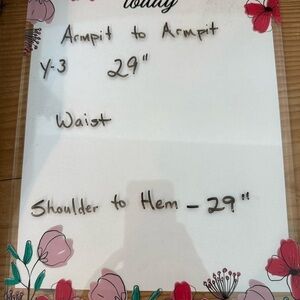 today
Armpit to Armpit
Y-3 29"
Waist
Shoulder to Hem - 29"